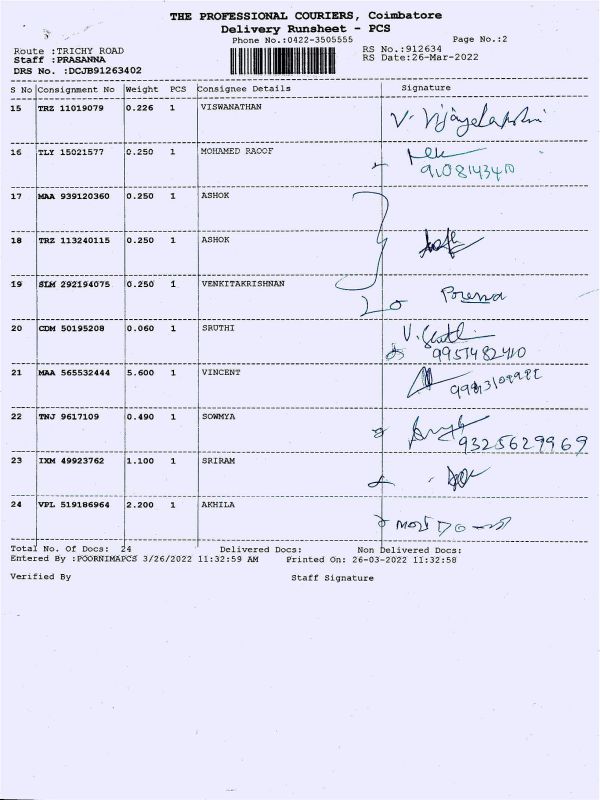 THE PROFESSIONAL COURIERS, Coimbatore
Delivery Runsheet - PCS
Phone No.:0422-3505555
Page No.:2
Route :TRICHY ROAD
RS No.:912634
Staff :PRASANNA
RS Date:26-Mar-2022
DRS No. :DCJB91263402
S No Consignment No Weight PCS Consignee Details Signature
15 TRZ 11019079 0.226 1 VISWANATHAN V. Vijayalakshmi
16 TLY 15021577 0.250 1 MOHAMED RAOOF
9108143410
17 MAA 939120360 0.250 1 ASHOK
18 TRZ 113240115 0.250 1 ASHOK
19 SLM 292194075 0.250 1 VENKITAKRISHNAN
20 CDM 50195208 0.060 1 SRUTHI
21 MAA 565532444 5.600 1 VINCENT
22 TNJ 9617109 0.490 1 SOWMYA
9325629969
23 IXM 49923762 1.100 1 SRIRAM
24 VPL 519186964 2.200 1 AKHILA
Total No. Of Docs: 24 Delivered Docs: Non Delivered Docs:
Entered By :POORNIMAPCS 3/26/2022 11:32:59 AM Printed On: 26-03-2022 11:32:58
Verified By Staff Signature